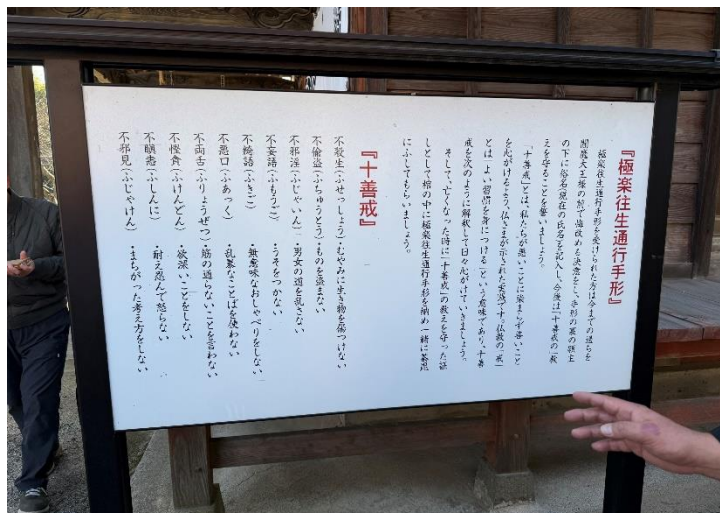 『極楽往生通行手形』
極楽往生通行手形を受けられた方は今までの過ちを
閻魔大王様の前で悔改める決意をし、手形の裏の願主
の下に俗名(現在の氏名)を記入し、今後は「十善戒の」教
えを守ることを誓いましょう。
「十善戒」とは、私たちが悪いことに染まらず善いこと
を心がけるよう、仏さまが示された実践です。仏教の「戒」
とは「よい習慣を身につける」という意味であり、十善
戒を次のように解釈して日々心がけていきましょう。
そして、亡くなった時に「十善戒」の教えを守った証
しとして棺の中に極楽往生通行手形を納め一緒に荼毘
にふしてもらいましょう。
『十善戒』
不殺生(ふせっしょう)・むやみに生き物を傷つけない
不偸盗(ふちゅうとう)・ものを盗まない
不邪淫(ふじゃいん)・男女の道を乱さない
不妄語(ふもうご)・うそをつかない
不綺語(ふきご)・無意味なおしゃべりをしない
不悪口(ふあっく)・乱暴なことばを使わない
不両舌(ふりょうぜつ)・筋の通らないことを言わない
不慳貪(ふけんどん)・欲深いことをしない
不瞋恚(ふしんに)・耐え忍んで怒らない
不邪見(ふじゃけん)・まちがった考え方をしない